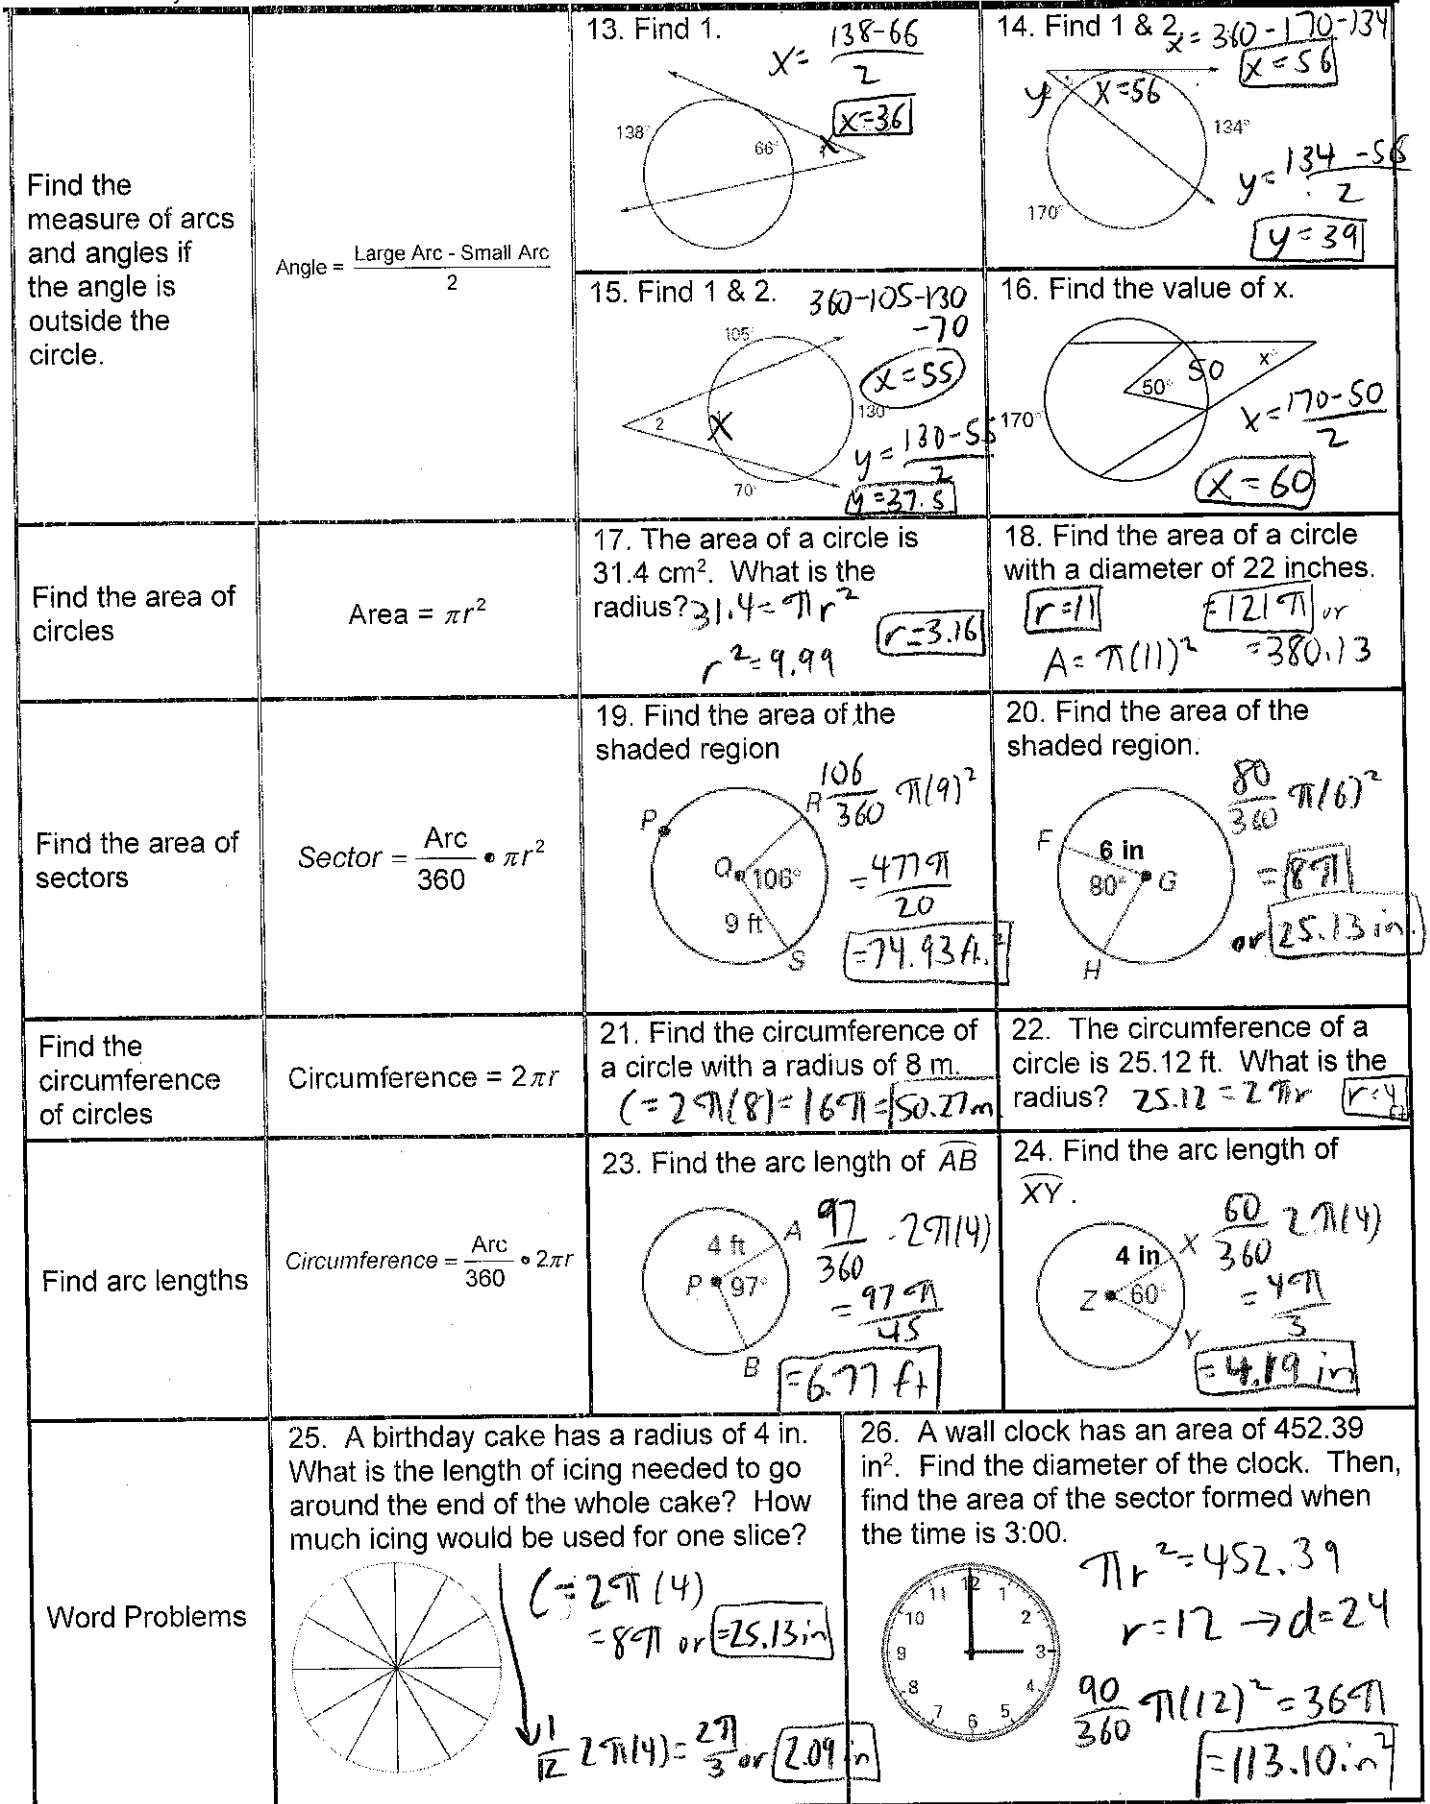 Find the
measure of arcs
and angles if
the angle is
outside the
circle.
Angle = Large Arc - Small Arc / 2
13. Find 1.
x = 138-66 / 2
x=36
138°
66°
x
14. Find 1 & 2.
x = 360-170-134
x=56
y
x=56
134°
170°
y = 134-56 / 2
y=39
15. Find 1 & 2.
360-105-130
-70
105°
x=55
2
x
130°
70°
y = 130-55 / 2
y=37.5
16. Find the value of x.
50°
50
x°
170°
x = 170-50 / 2
x=60
Find the area of
circles
Area = πr²
17. The area of a circle is
31.4 cm². What is the
radius? 31.4=πr²
r=3.16
r²=9.99
18. Find the area of a circle
with a diameter of 22 inches.
r=11
=121π or
A=π(11)² =380.13
Find the area of
sectors
Sector = Arc / 360 • πr²
19. Find the area of the
shaded region
P
R
106/360 π(9)²
Q
106°
=477π/20
9 ft
S
=74.93 ft.²
20. Find the area of the
shaded region.
80/360 π(6)²
F
6 in
80°
G
=8π
or 25.13 in.
H
Find the
circumference
of circles
Circumference = 2πr
21. Find the circumference of
a circle with a radius of 8 m.
C=2π(8)=16π=50.27m
22. The circumference of a
circle is 25.12 ft. What is the
radius? 25.12=2πr r=4 ft
Find arc lengths
Circumference = Arc / 360 • 2πr
23. Find the arc length of AB
97/360 · 2π(4)
4 ft
A
P
97°
=97π/45
B
=6.77 ft
24. Find the arc length of
XY.
60/360 2π(4)
4 in
X
Z
60°
=4π/3
Y
=4.19 in
Word Problems
25. A birthday cake has a radius of 4 in.
What is the length of icing needed to go
around the end of the whole cake? How
much icing would be used for one slice?
C=2π(4)
=8π or =25.13in
1/12 2π(4)=2π/3 or 2.09 in
26. A wall clock has an area of 452.39
in². Find the diameter of the clock. Then,
find the area of the sector formed when
the time is 3:00.
πr²=452.39
r=12 → d=24
12
1
2
3
4
5
6
7
8
9
10
11
90/360 π(12)²=36π
=113.10 in²